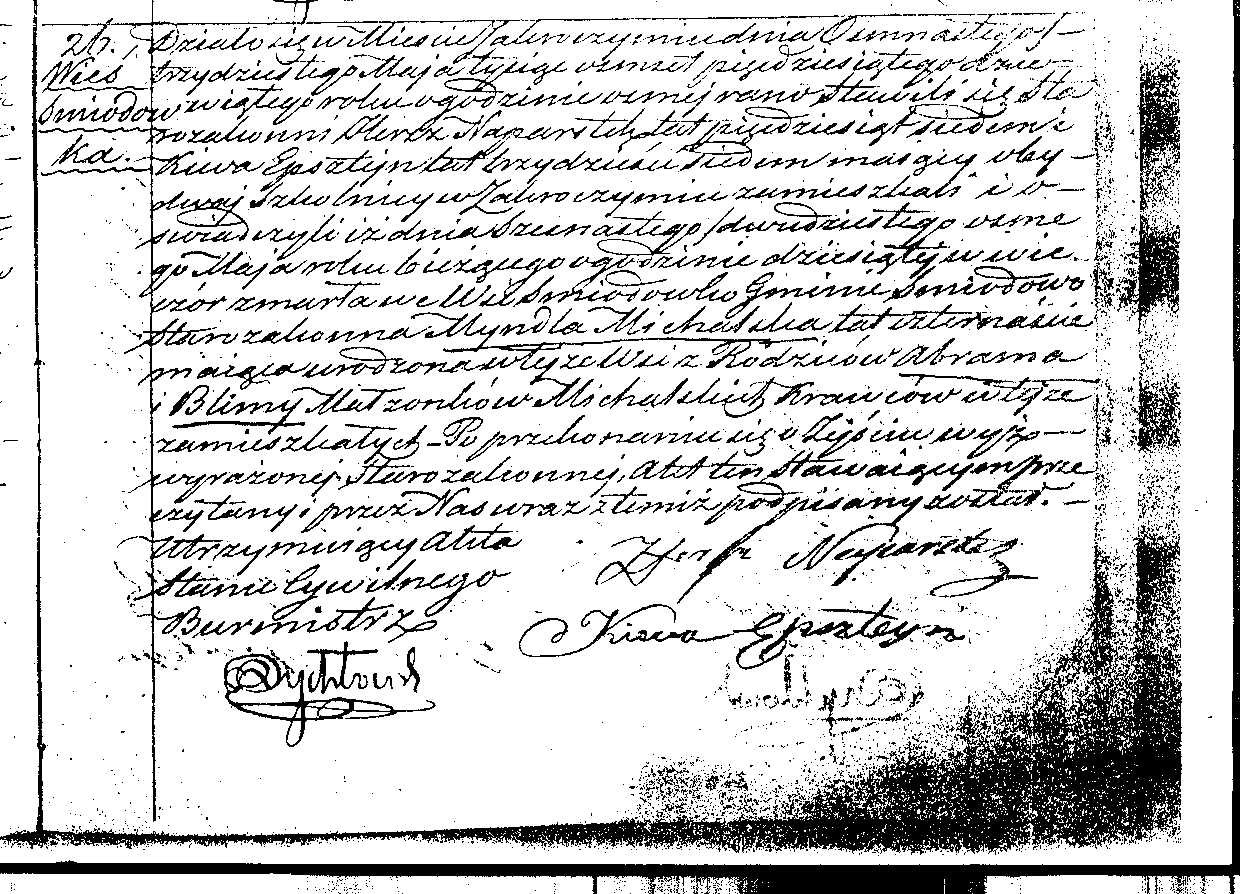 26.
Wieś
Smiodow
ka.
Działo się w Mieście Zakroczymiu dnia Osmnastego/
trzydziestego Maja tysiąc osmset pięćdziesiątego dzie-
wiątego roku o godzinie osmej rano Stawili się Sta
rozakonni Hersz Naparstek lat pięćdziesiąt siedem i
Kiwa Epsztejn lat trzydzieści siedem maiący oby-
dwaj Szkolnicy w Zakroczymiu zamieszkali i o-
świadczyli iż dnia Szesnastego/dwudziestego osme
go Maja roku bieżącego o godzinie dziesiątej w wie-
czór zmarła we Wsi Smiodowko Gminie Smiodowo
Starozakonna Myndla Michalska lat czternaście
maiąca urodzona w tejże Wsi z Rodziców Abrama
i Blimy Małżonków Michalskich Krawców w tejże
zamieszkałych - Po przekonaniu się o Zejściu wyż-
wyrażonej Starozakonnej, Akt ten Stawaiącym prze
czytany i przez Nas wraz z temiż podpisany został. -
Utrzymuiący Akta
Stanu Cywilnego
Burmistrz
Herszk Naparstek
Kiwa Epszteyn